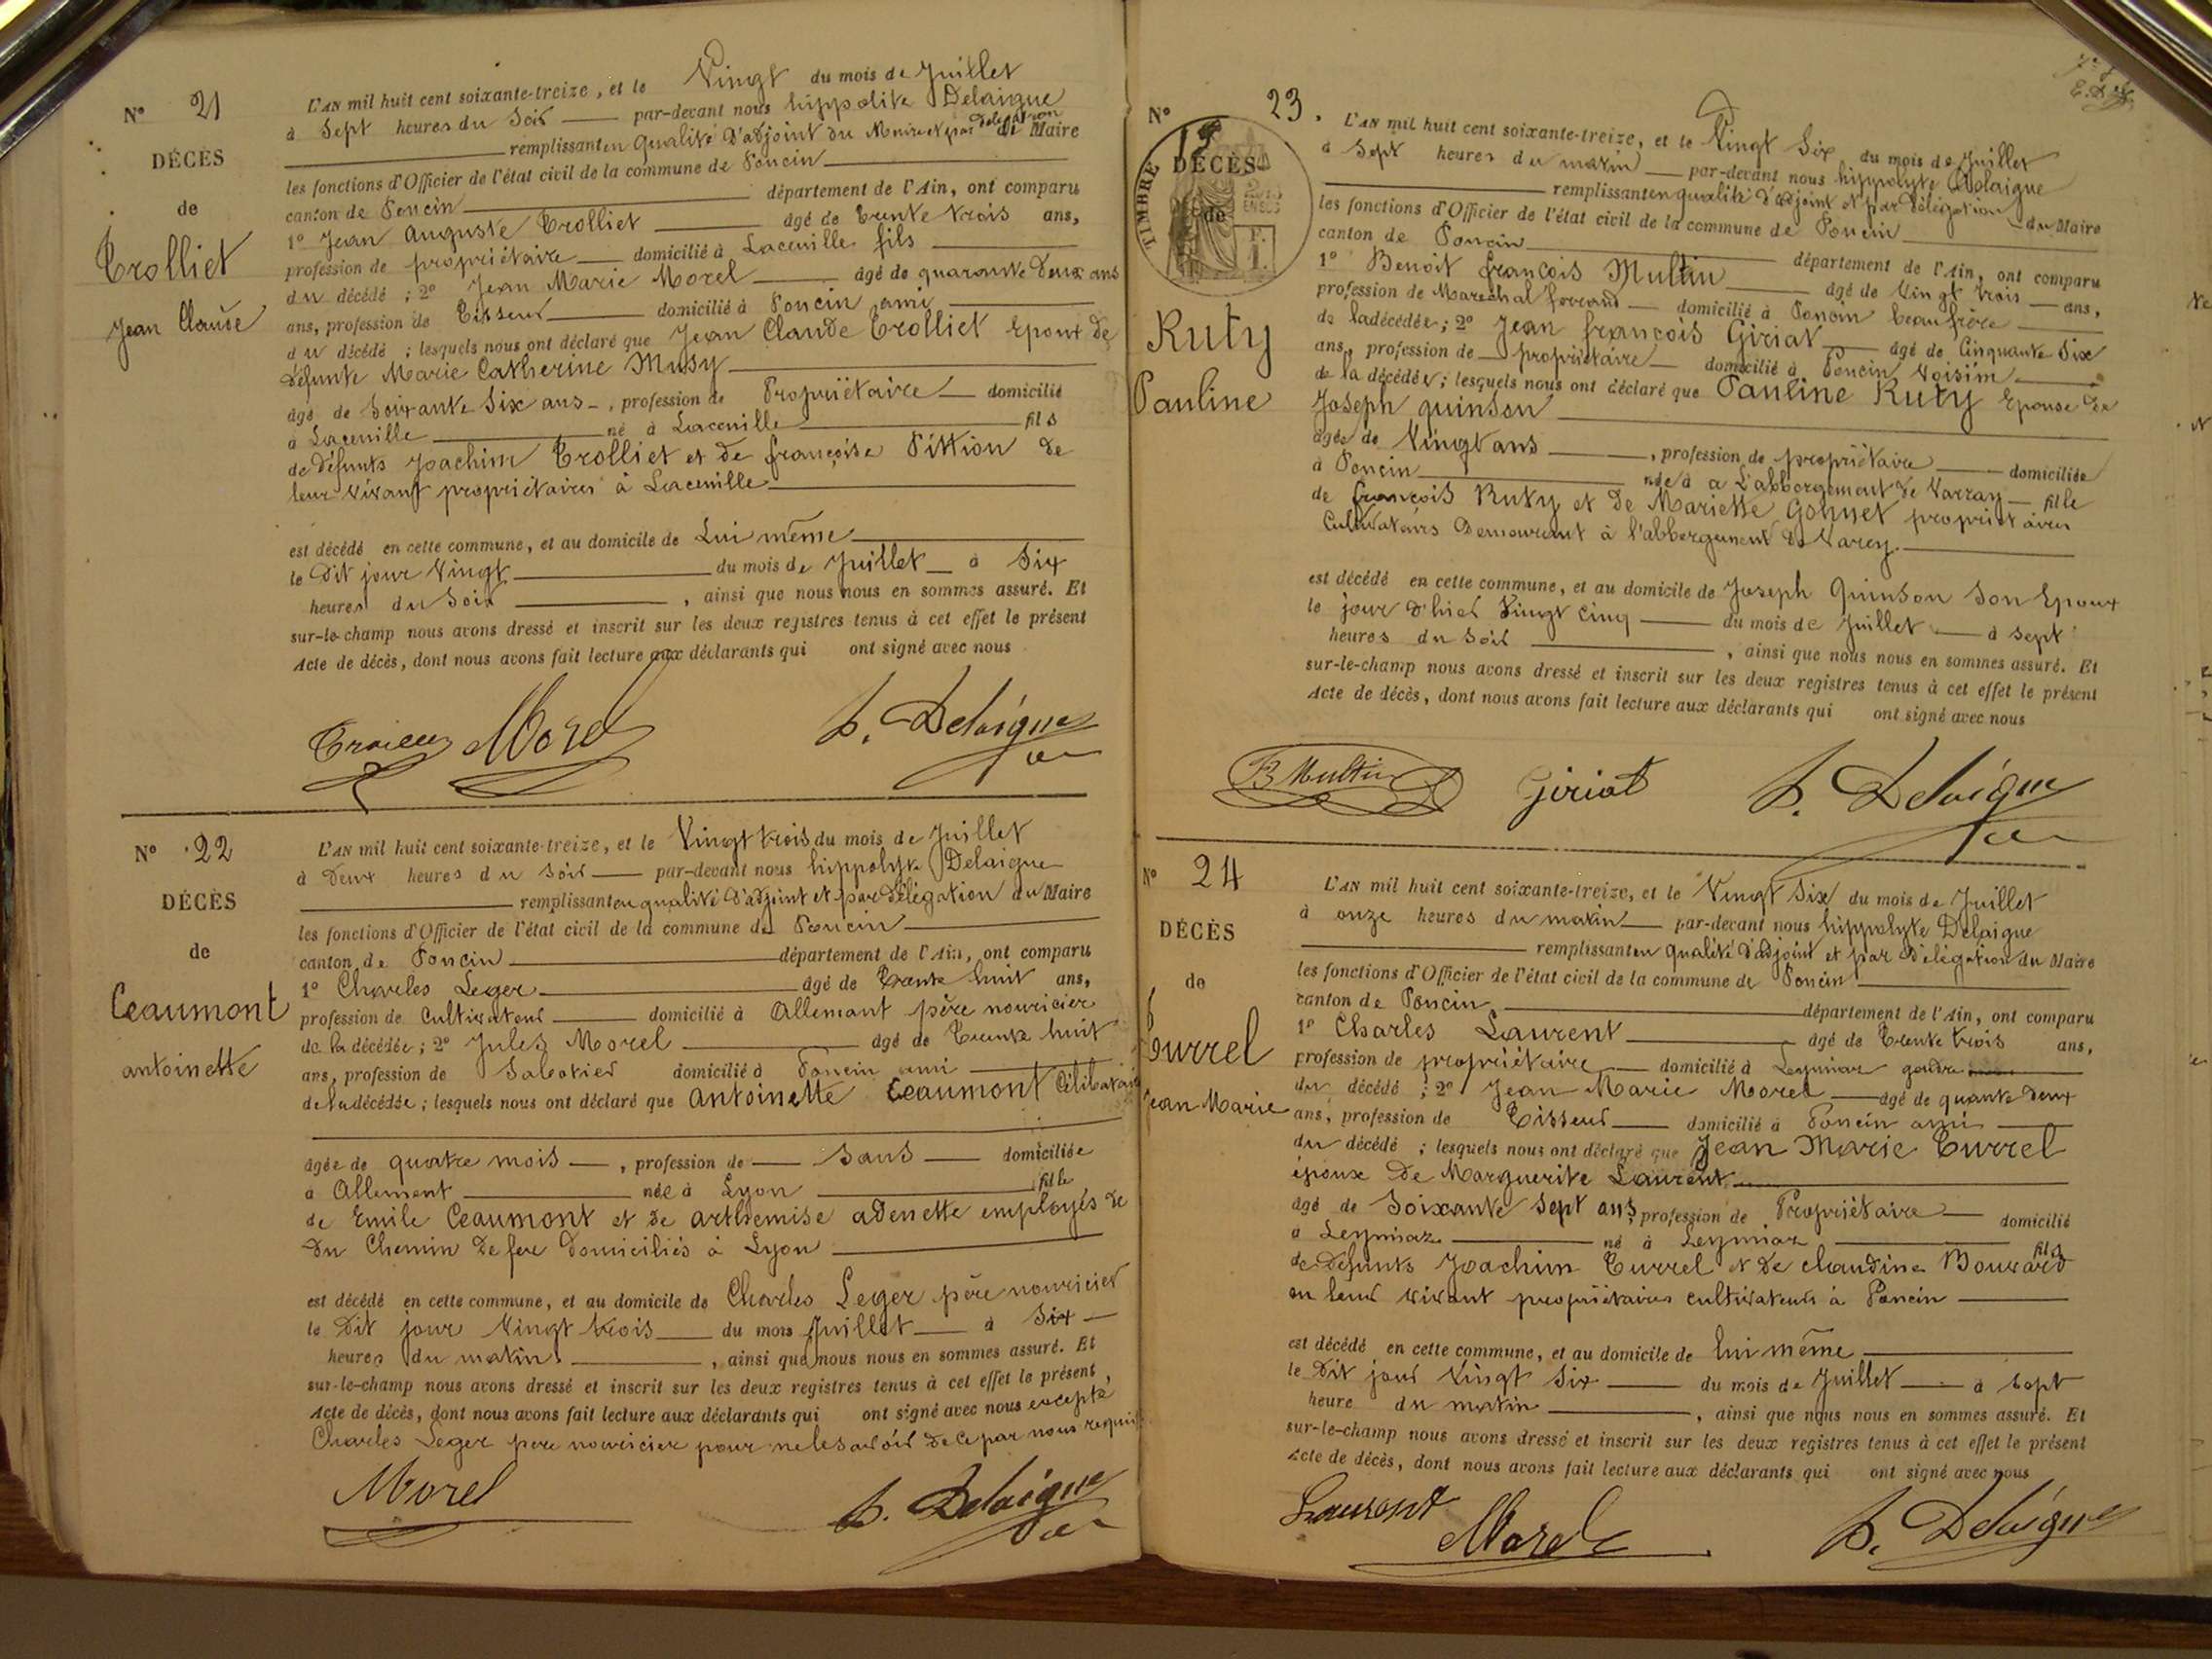 N° 21
DÉCÈS
de
Trolliet
Jean Claude
L'AN mil huit cent soixante-treize, et le Vingt du mois de Juillet
à Sept heures du Soir par-devant nous hippolite Delaigue
remplissant en qualité d'adjoint du Maire et par délégation du Maire
les fonctions d'Officier de l'état civil de la commune de Poncin
canton de Poncin département de l'Ain, ont comparu
1° Jean Auguste Trolliet âgé de trente trois ans,
profession de propriétaire domicilié à Lacenille fils
du décédé ; 2° Jean Marie Morel âgé de quarante deux ans
ans, profession de Tisseur domicilié à Poncin ami
du décédé ; lesquels nous ont déclaré que Jean Claude Trolliet Epoux de
défunte Marie Catherine Musy
âgé de Soixante Six ans, profession de Propriétaire domicilié
à Lacenille né à Lacenille fils
de défunts Joachim Trolliet et de françoise Pittion de
leur vivant propriétaires à Lacenille
est décédé en cette commune, et au domicile de Lui même
le dit jour Vingt du mois de Juillet à Six
heures du Soir, ainsi que nous nous en sommes assuré. Et
sur-le-champ nous avons dressé et inscrit sur les deux registres tenus à cet effet le présent
Acte de décès, dont nous avons fait lecture aux déclarants qui ont signé avec nous
Morel H. Delaigue
N° 22
DÉCÈS
de
Ceaumont
antoinette
L'AN mil huit cent soixante-treize, et le Vingt trois du mois de Juillet
à Deux heures du Soir par-devant nous hippolyte Delaigue
remplissant en qualité d'adjoint et par délégation du Maire
les fonctions d'Officier de l'état civil de la commune de Poncin
canton de Poncin département de l'Ain, ont comparu
1° Charles Leger âgé de trente huit ans,
profession de Cultivateur domicilié à Allemant père nouricier
de la décédée ; 2° Jules Morel âgé de trente huit
ans, profession de Sabotier domicilié à Poncin ami
de la décédée ; lesquels nous ont déclaré que Antoinette Ceaumont Célibataire
âgée de quatre mois, profession de Sans domiciliée
à Allement née à Lyon fille
de Emile Ceaumont et de arthemise adenette employés de
du Chemin de fer domiciliés à Lyon
est décédé en cette commune, et au domicile de Charles Leger père nouricier
le dit jour Vingt trois du mois Juillet à Six
heures du matin, ainsi que nous nous en sommes assuré. Et
sur-le-champ nous avons dressé et inscrit sur les deux registres tenus à cet effet le présent,
Acte de décès, dont nous avons fait lecture aux déclarants qui ont signé avec nous excepté
Charles Leger père nouricier pour ne le savoir de ce par nous requis
Morel H. Delaigue
N° 23.
DÉCÈS
de
TIMBRE
Ruty
Pauline
L'AN mil huit cent soixante-treize, et le Vingt Six du mois de Juillet
à Sept heures du matin par-devant nous hippolyte Delaigue
remplissant en qualité d'adjoint et par délégation du Maire
les fonctions d'Officier de l'état civil de la commune de Poncin
canton de Poncin département de l'Ain, ont comparu
1° Benoit françois Multin âgé de Vingt trois ans,
profession de Marechal ferrand domicilié à Poncin beaufrère
de la décédée ; 2° Jean françois Giriat âgé de Cinquante Six
ans, profession de propriétaire domicilié à Poncin Voisin
de la décédée ; lesquels nous ont déclaré que Pauline Ruty Epouse de
Joseph quinson
âgée de Vingt ans, profession de propriétaire domiciliée
à Poncin née à a L'abbergement de Varray fille
de françois Ruty et de Mariette Gonnet propriétaires
Cultivateurs Demeurant à l'abbergement de Varey.
est décédé en cette commune, et au domicile de Joseph Quinson Son Epoux
le jour d'hier Vingt Cinq du mois de Juillet à Sept
heures du Soir, ainsi que nous nous en sommes assuré. Et
sur-le-champ nous avons dressé et inscrit sur les deux registres tenus à cet effet le présent
Acte de décès, dont nous avons fait lecture aux déclarants qui ont signé avec nous
B Multin Giriat H. Delaigue
N° 24
DÉCÈS
de
Turrel
Jean Marie
L'AN mil huit cent soixante-treize, et le Vingt Six du mois de Juillet
à onze heures du matin par-devant nous hippolyte Delaigue
remplissant en qualité d'adjoint et par délégation du Maire
les fonctions d'Officier de l'état civil de la commune de Poncin
canton de Poncin département de l'Ain, ont comparu
1° Charles Laurent âgé de trente trois ans,
profession de propriétaire domicilié à Leymiaz gendre
du décédé ; 2° Jean Marie Morel âgé de quante deux
ans, profession de Tisseur domicilié à Poncin ami
du décédé ; lesquels nous ont déclaré que Jean Marie Turrel
époux de Marguerite Laurent
âgé de Soixante Sept ans, profession de Propriétaire domicilié
à Leymiaz né à Leymiaz fils
de défunts Joachim Turrel et de Claudine Bouvard
en leur vivant propriétaires cultivateurs à Poncin
est décédé en cette commune, et au domicile de lui même
le dit jour Vingt Six du mois de Juillet à Sept
heure du matin, ainsi que nous nous en sommes assuré. Et
sur-le-champ nous avons dressé et inscrit sur les deux registres tenus à cet effet le présent
Acte de décès, dont nous avons fait lecture aux déclarants qui ont signé avec nous
Laurent Morel H. Delaigue